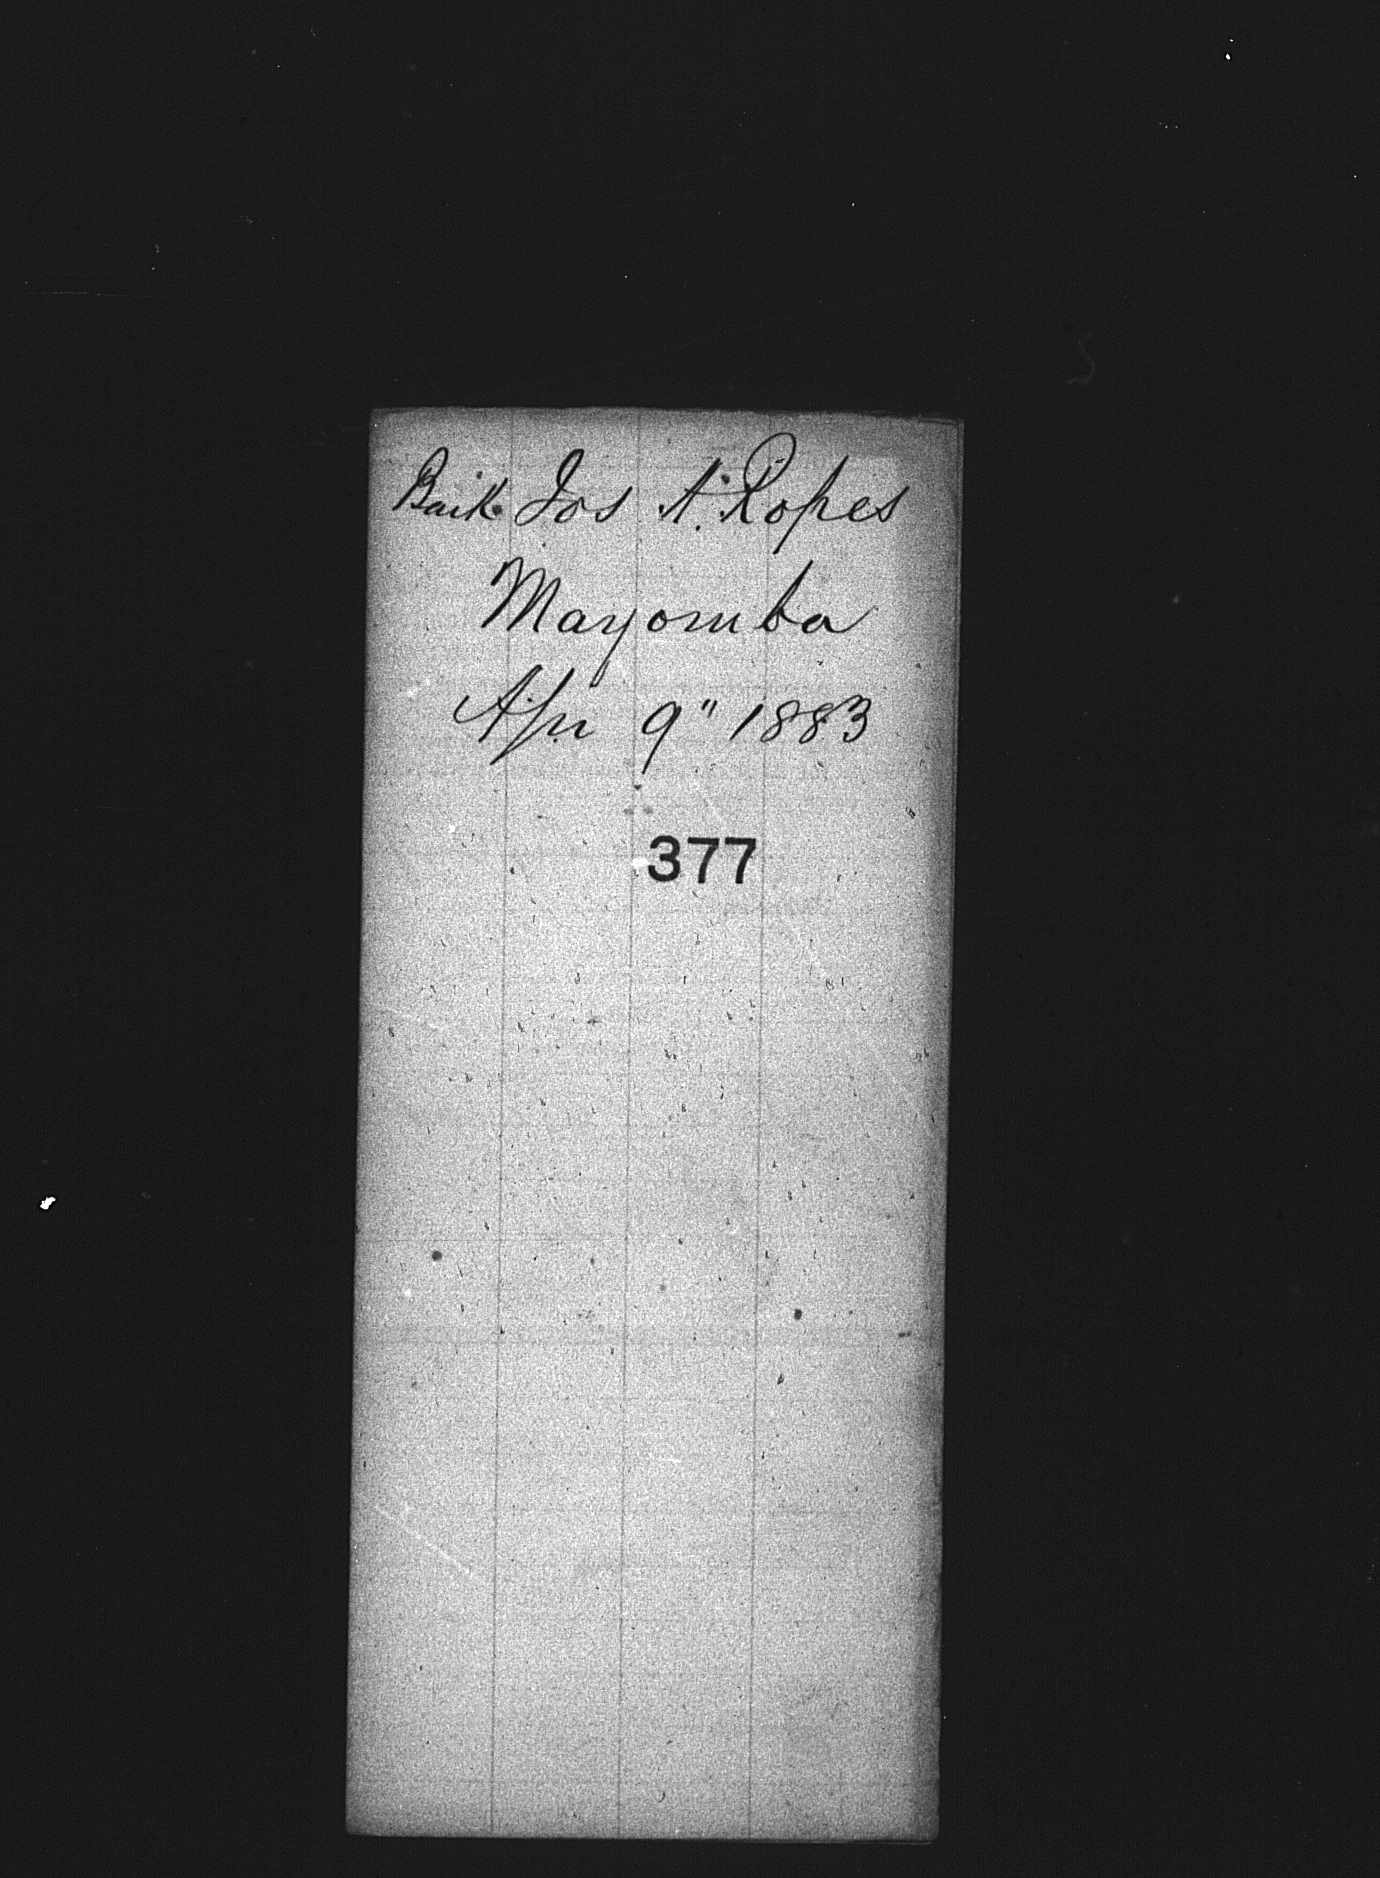 Bark Jos A. Ropes
Mayomba
Apr 9" 1883
377